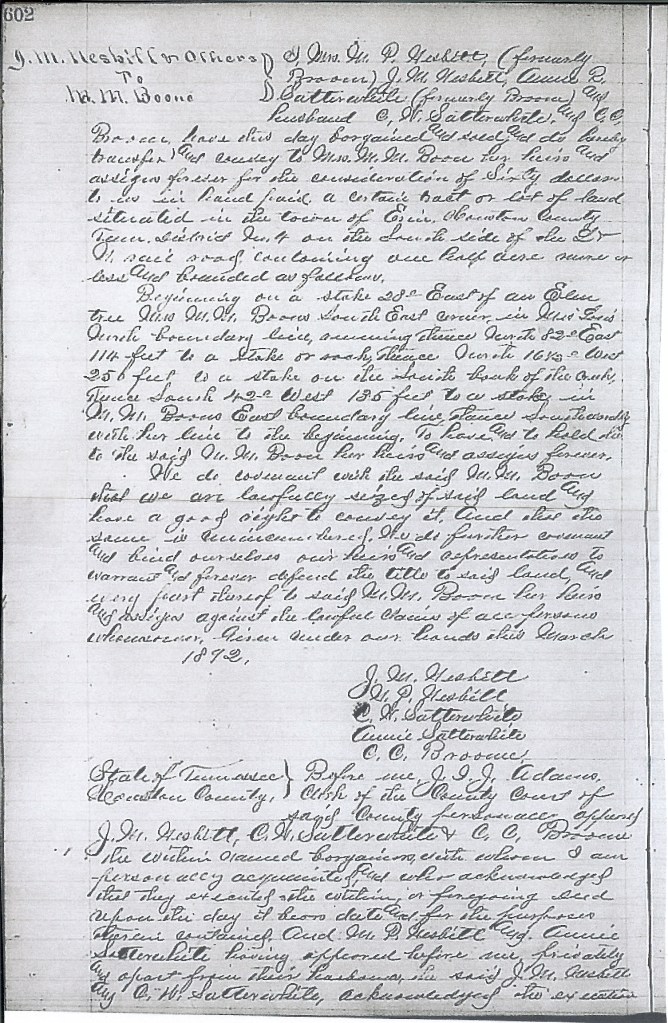 602
J. M. Nesbitt & Others
To
M. M. Boone
I, Mrs. M. P. Nesbitt, (formerly
Broom) J. M. Nesbitt, Annie R.
Satterwhite (formerly Broom) and
husband C. W. Satterwhite, and C. C.
Broom, have this day bargained and sold and do hereby
transfer and convey to Mrs. M. M. Boon her heirs and
assigns forever for the consideration of Sixty dollars
to us in hand paid a certain tract or lot of land
situated in the town of Erin, Houston County
Tenn. District No. 4 on the South side of the
rail road, containing one half acre more or
less and bounded as follows.
Beginning on a stake 28° East of an Elm
tree Mrs M. M. Boons South East corner, in
North boundary line, running thence North 82° East
114 feet to a stake or rock, thence North 16½° West
256 feet to a stake on the South bank of the creek,
Thence South 42° West 135 feet to a stake in
M. M. Boons East boundary line, thence Southwardly
with her line to the beginning. To have and to hold the
to the said M. M. Boon her heirs and assigns forever.
We do covenant with the said M. M. Boon
that we are lawfully seized of said land and
have a good right to convey it, and that the
same is unincumbered. We do further covenant
and bind ourselves our heirs and representatives to
warrant and forever defend the title to said land, and
every part thereof to said M. M. Boon her heirs
and assigns against the lawful claims of all persons
whomsoever. Given under our hands this March
1892.
J. M. Nesbitt
M. P. Nesbitt
C. W. Satterwhite
Annie Satterwhite
C. C. Broome
State of Tennessee } Before me, J. I. J. Adams,
Houston County, Clerk of the County Court of
said County personally appeared
J. M. Nesbitt, C. W. Satterwhite & C. C. Broome
the within named bargainors, with whom I am
personally acquainted, and who acknowledged
that they executed the within or foregoing deed
upon the day it bears date and for the purposes
therein contained. And M. P. Nesbitt and Annie
Satterwhite having appeared before me privately
and apart from their husbands, the said J. M. Nesbitt
and C. W. Satterwhite, acknowledged the execution